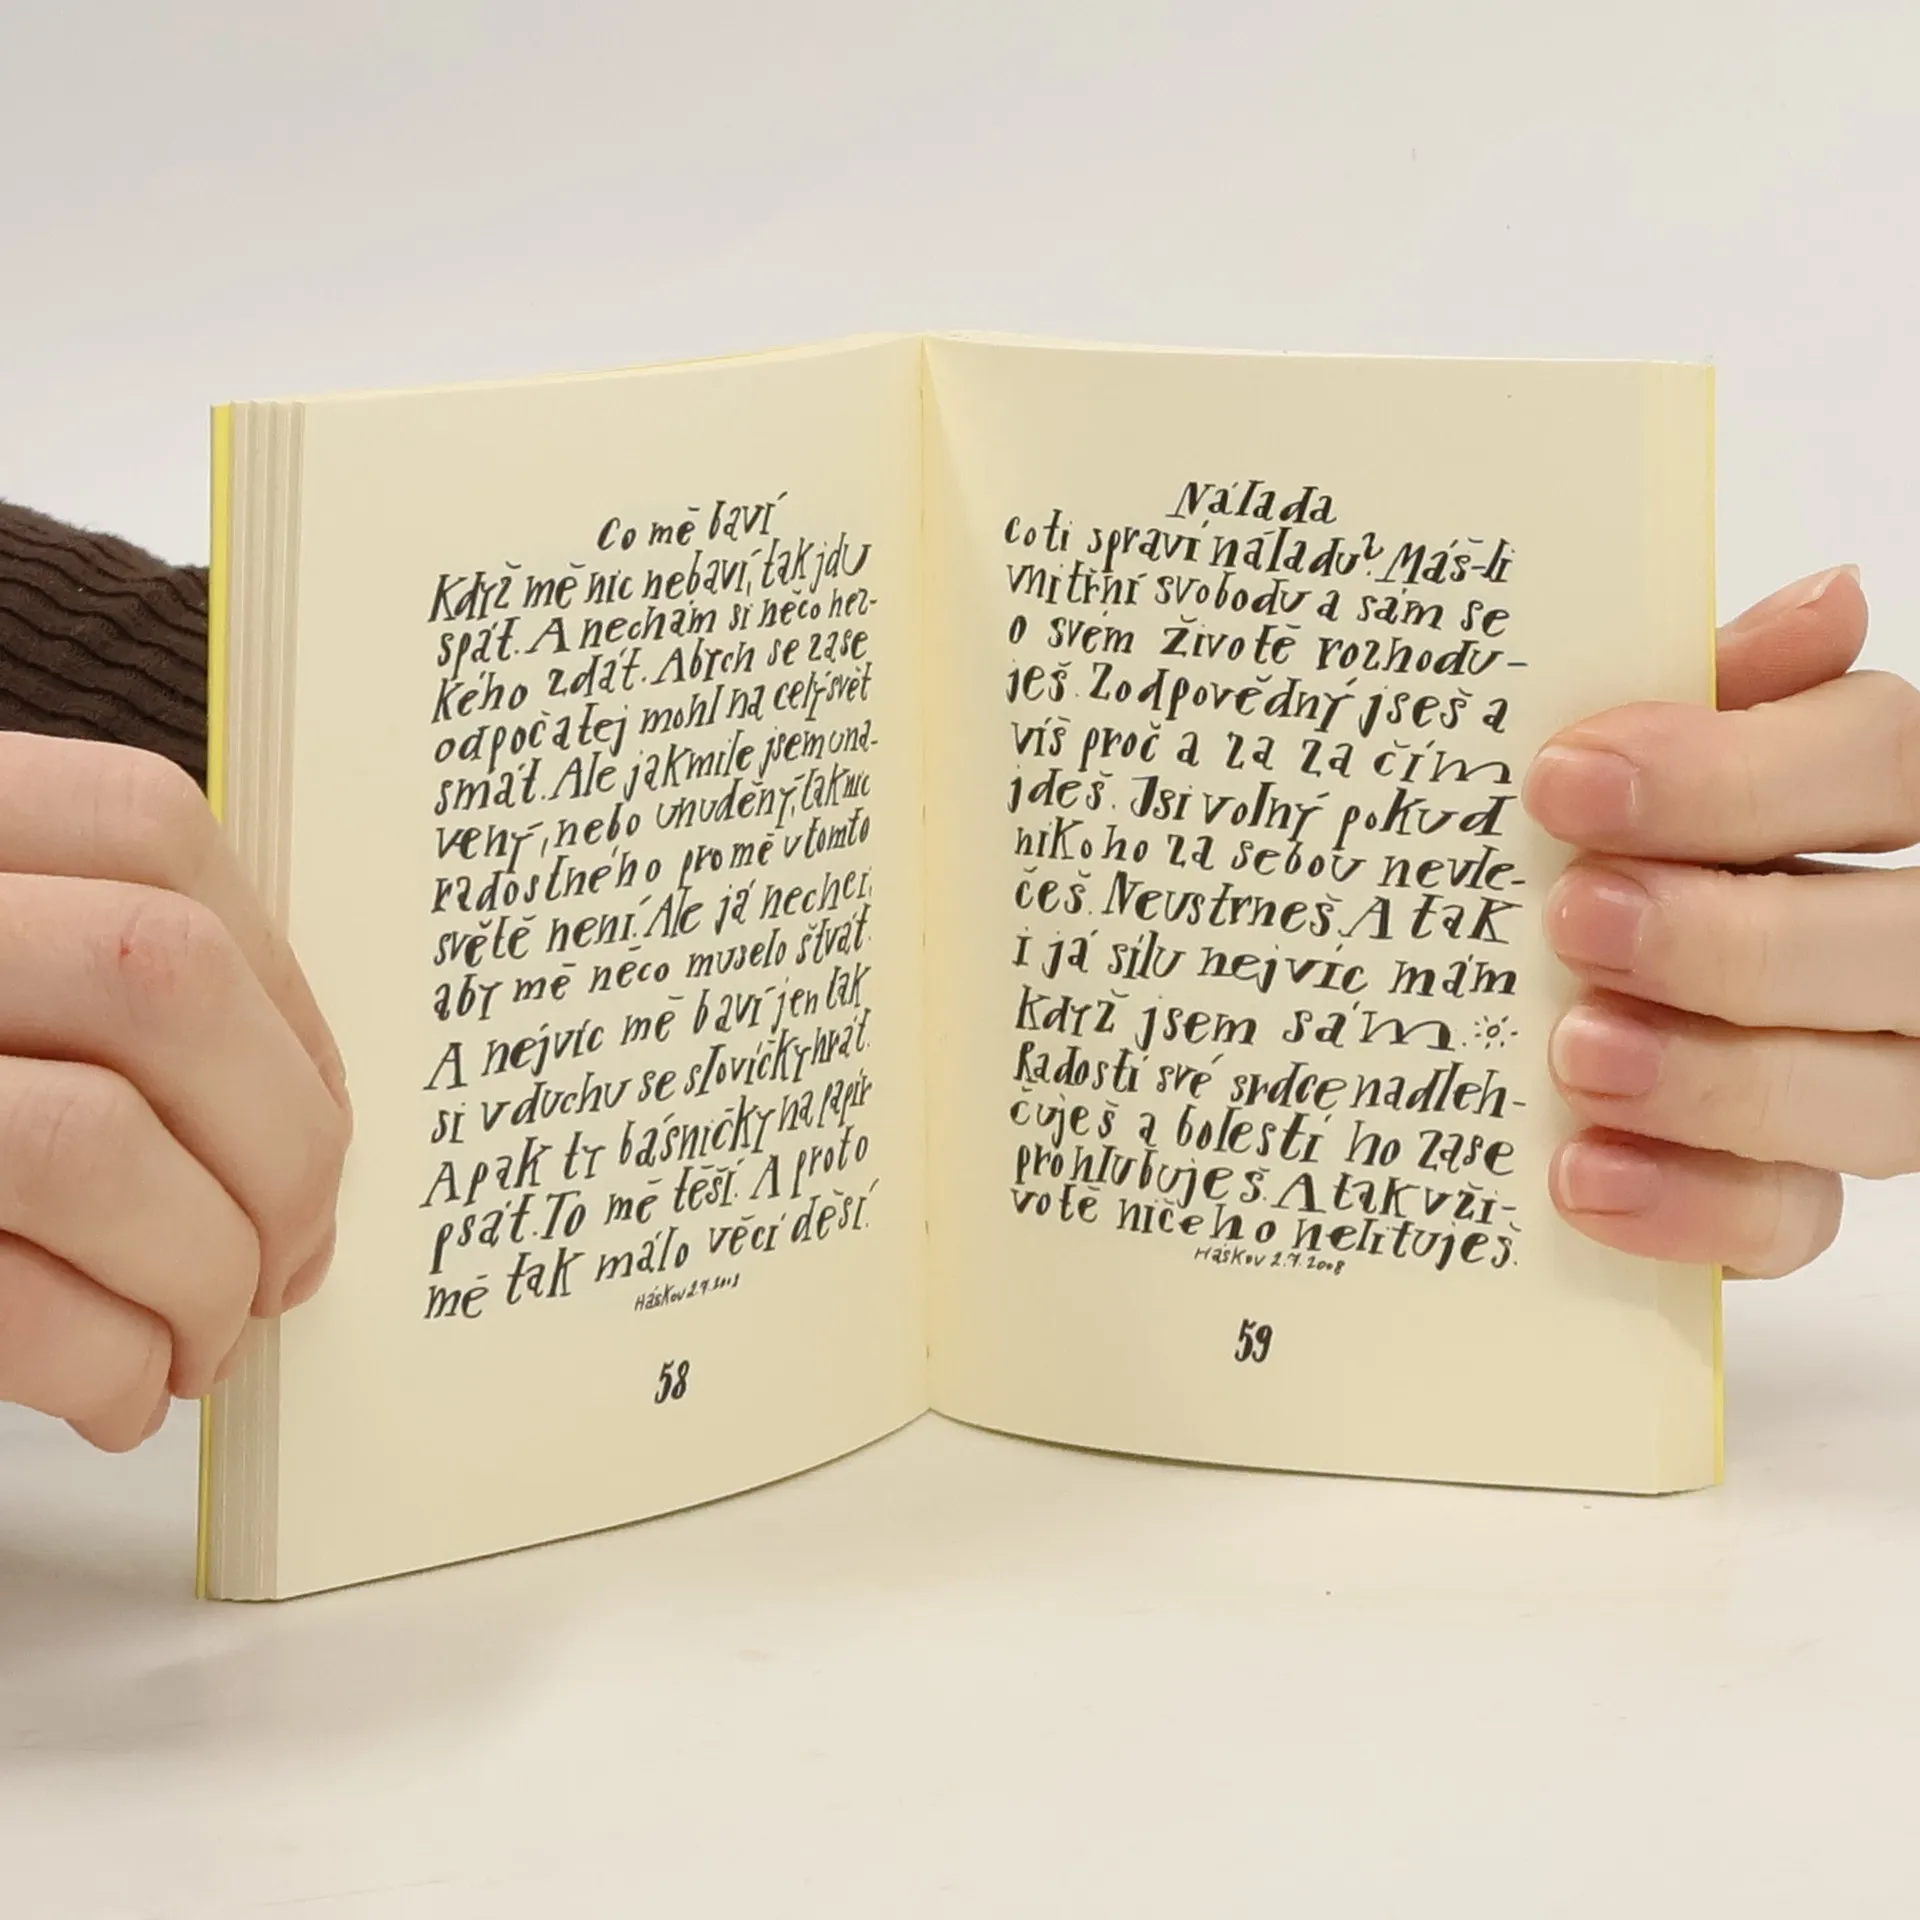 Co mě baví
Když mě nic nebaví, tak jdu
spát. A nechám si něco hez-
kého zdát. Abych se zase
odpočatej mohl na celý svět
smát. Ale jakmile jsem una-
vený, nebo unuděný, tak nic
radostného pro mě v tomto
světě není. Ale já nechci,
aby mě něco muselo štvát.
A nejvíc mě baví jen tak
si v duchu se slovíčky hrát.
A pak ty básničky na papír
psát. To mě těší. A proto
mě tak málo věcí děsí.
Háskov
58
Nálada
Co ti spraví náladu? Máš-li
vnitřní svobodu a sám se
o svém životě rozhodu-
ješ. Zodpovědný jseš a
víš proč a za za čím
jdeš. Jsi volný pokud
nikoho za sebou nevle-
češ. Neustrneš. A tak
i já sílu nejvíc mám
když jsem sám.
Radostí své srdce nadleh-
čuješ a bolestí ho zase
prohlubuješ. A tak v ži-
votě ničeho nelituješ.
Háskov 2.7.2008
59